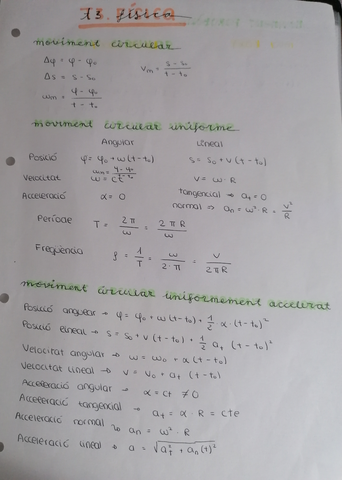 T3. FÍSICA
moviment circular
Δφ = φ - φ₀
Vm = s - s₀ / t - t₀
Δs = s - s₀
ωm = φ - φ₀ / t - t₀
moviment circular uniforme
Angular Lineal
Posició φ = φ₀ + ω (t - t₀) s = s₀ + v (t - t₀)
ωm = φ - φ₀ / t - t₀
Velocitat ω = ct v = ω · R
Acceleració α = 0 tangencial → at = 0
normal ⇒ an = ω² · R = v² / R
Període T = 2π / ω = 2πR / ω
Freqüència f = 1 / T = ω / 2·π = v / 2πR
moviment circular uniformement accelerat
Posició angular → φ = φ₀ + ω (t - t₀) + 1/2 α · (t - t₀)²
Posició lineal → s = s₀ + v (t - t₀) + 1/2 at (t - t₀)²
Velocitat angular → ω = ω₀ + α (t - t₀)
Velocitat lineal → v = v₀ + at (t - t₀)
Acceleració angular → α = ct ≠ 0
Acceleració tangencial → at = α · R = cte
Acceleració normal → an = ω² · R
Acceleració lineal → a = √at² + an(t)²